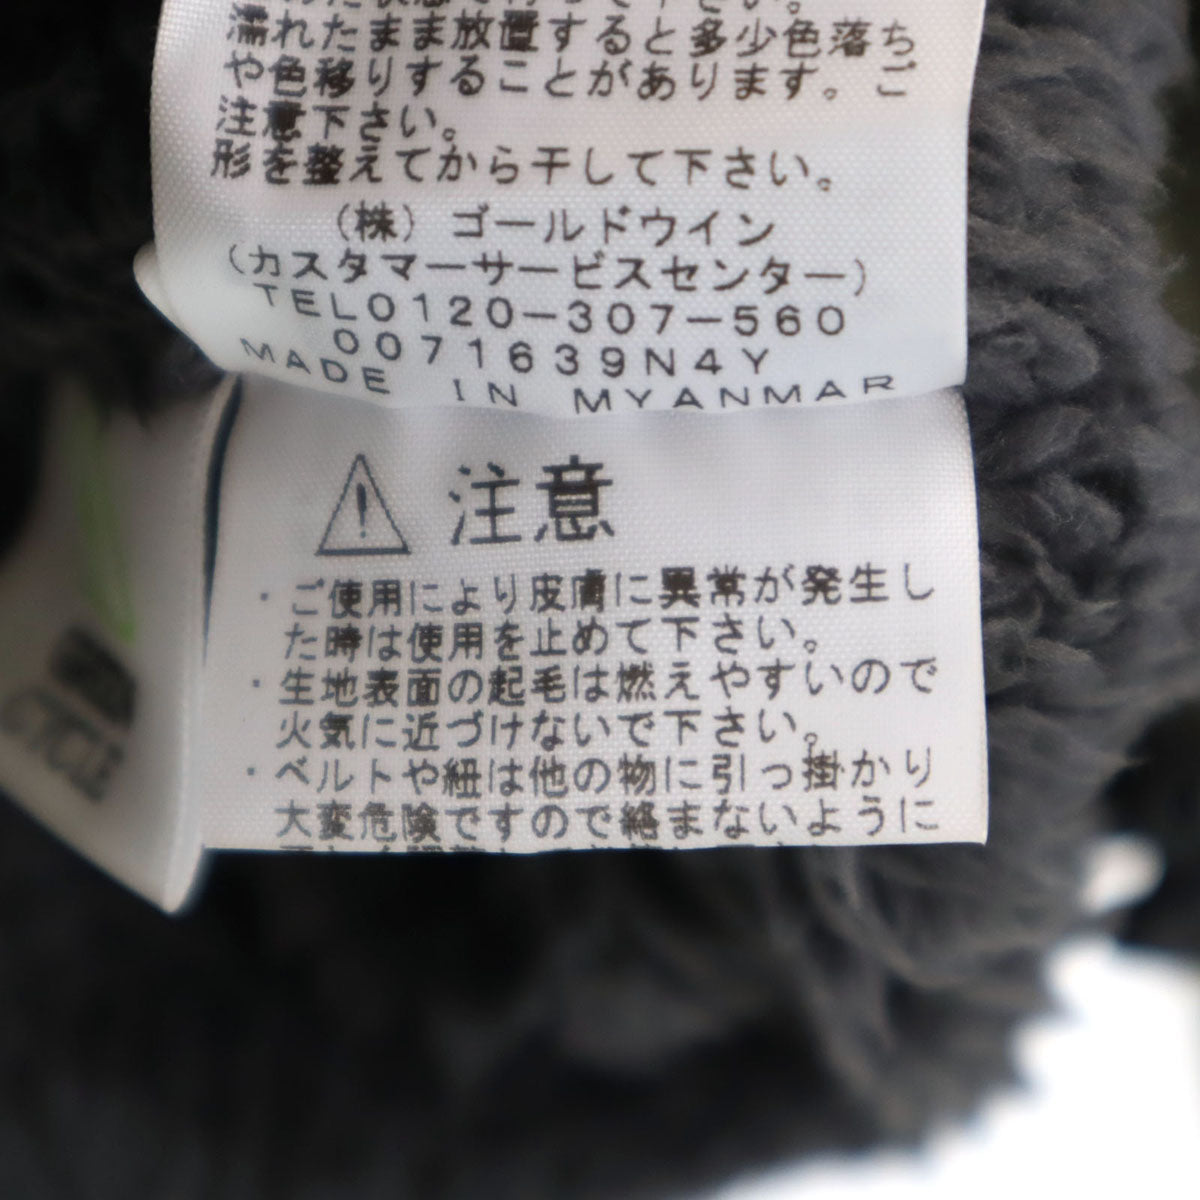 濡れたまま放置すると多少色落ち
や色移りすることがあります。ご
注意下さい。
形を整えてから干して下さい。
(株) ゴールドウイン
(カスタマーサービスセンター)
TEL0120-307-560
0071639N4Y
MADE IN MYANMAR
注意
・ご使用により皮膚に異常が発生し
た時は使用を止めて下さい。
・生地表面の起毛は燃えやすいので
火気に近づけないで下さい。
・ベルトや紐は他の物に引っ掛かり
大変危険ですので絡まないように
CYCLE